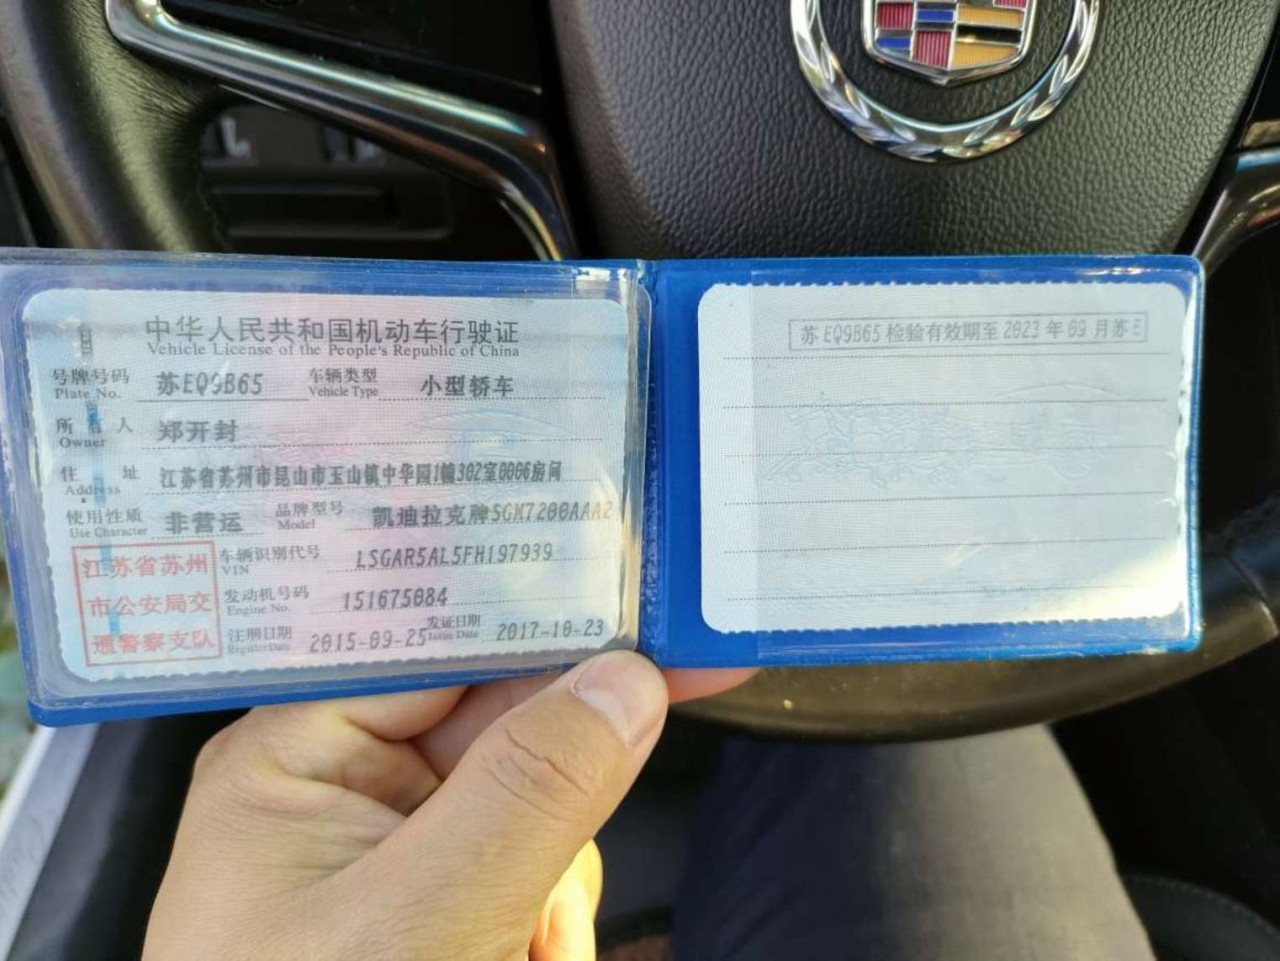 中华人民共和国机动车行驶证
Vehicle License of the People's Republic of China
号牌号码 苏EQ9B65 车辆类型 小型轿车
Plate No. Vehicle Type
所有人 郑开封
Owner
住址 江苏省苏州市昆山市玉山镇中华园1幢302室0006房间
Address
使用性质 非营运 品牌型号 凯迪拉克牌SGM7200AAA2
Use Character Model
江苏省苏州
市公安局交
通警察支队
车辆识别代号 LSGAR5AL5FH197939
VIN
发动机号码 151675084
Engine No.
注册日期 2015-09-25 发证日期 2017-10-23
Register Date Issue Date
苏EQ9B65 检验有效期至 2023 年 09 月苏E